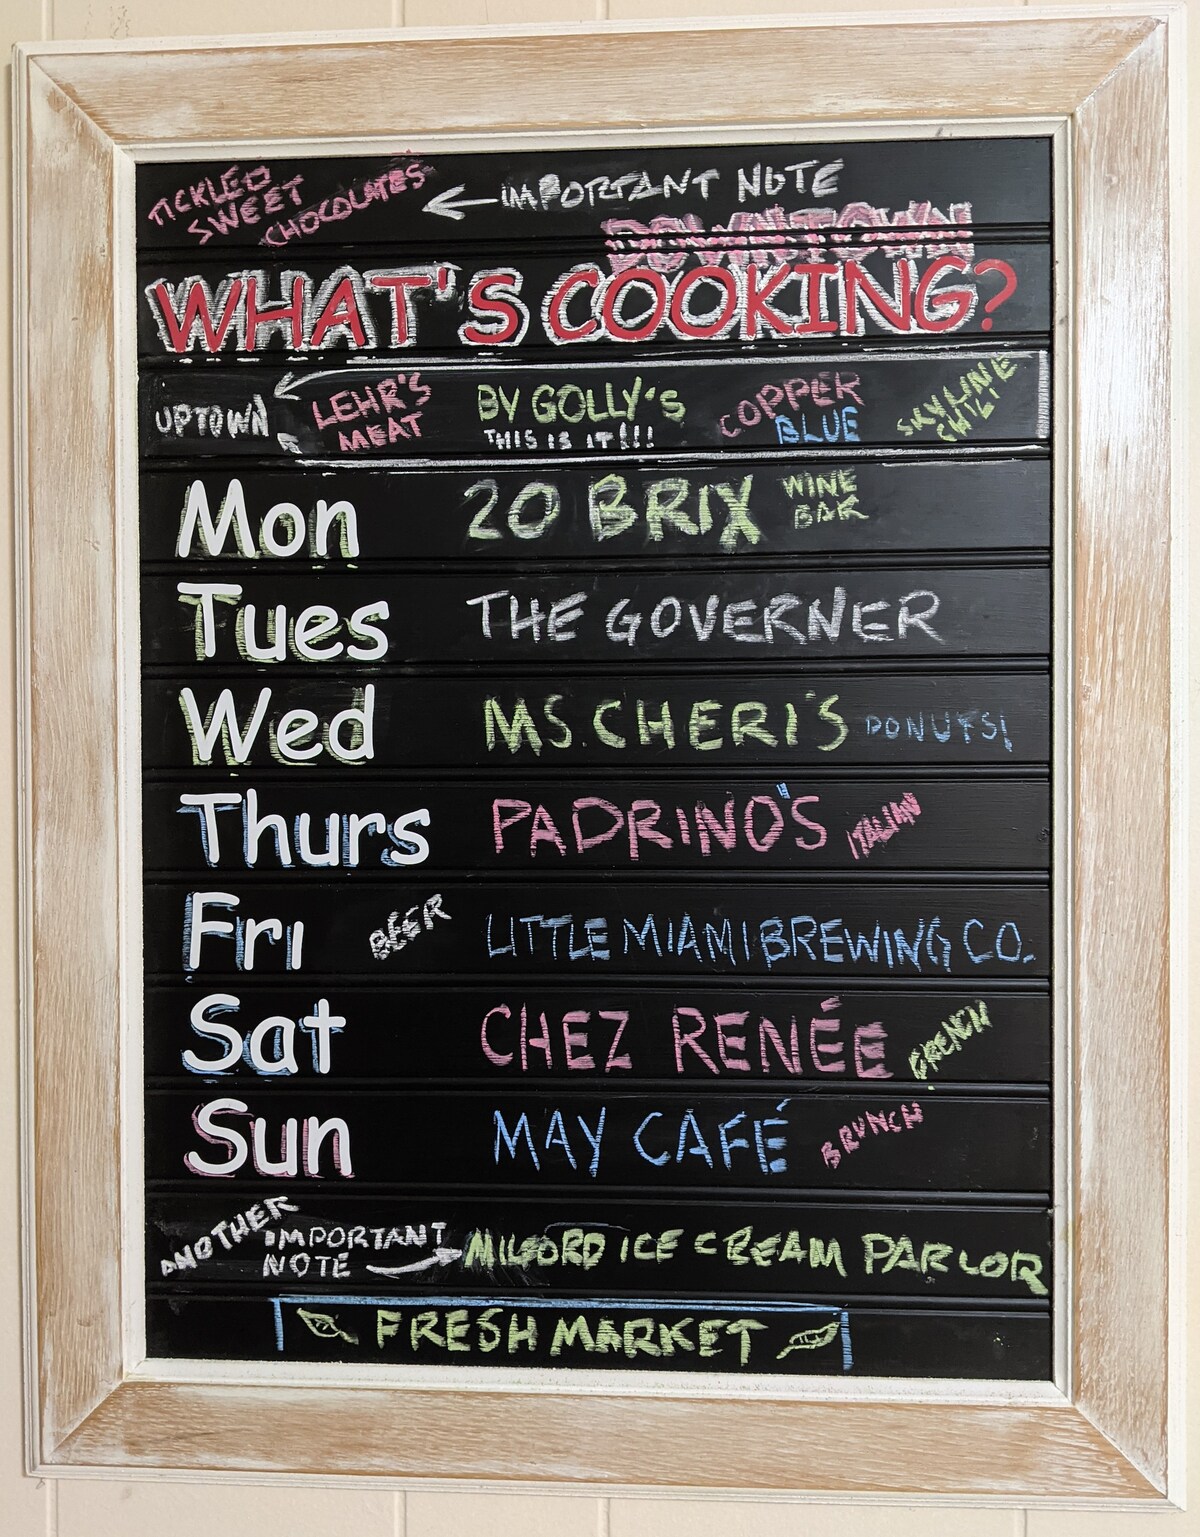 TICKLED SWEET CHOCOLATES ← IMPORTANT NOTE
DOWNTOWN
WHAT'S COOKING?
UPTOWN LEHR'S MEAT BY GOLLY'S THIS IS IT!!! COPPER BLUE SKYLINE CHILI
Mon 20 BRIX WINE BAR
Tues THE GOVERNER
Wed MS. CHERI'S DONUTS!
Thurs PADRINO'S ITALIAN
Fri BEER LITTLE MIAMI BREWING CO.
Sat CHEZ RENÉE FRENCH
Sun MAY CAFÉ BRUNCH
ANOTHER IMPORTANT NOTE → MILFORD ICE CREAM PARLOR
FRESH MARKET